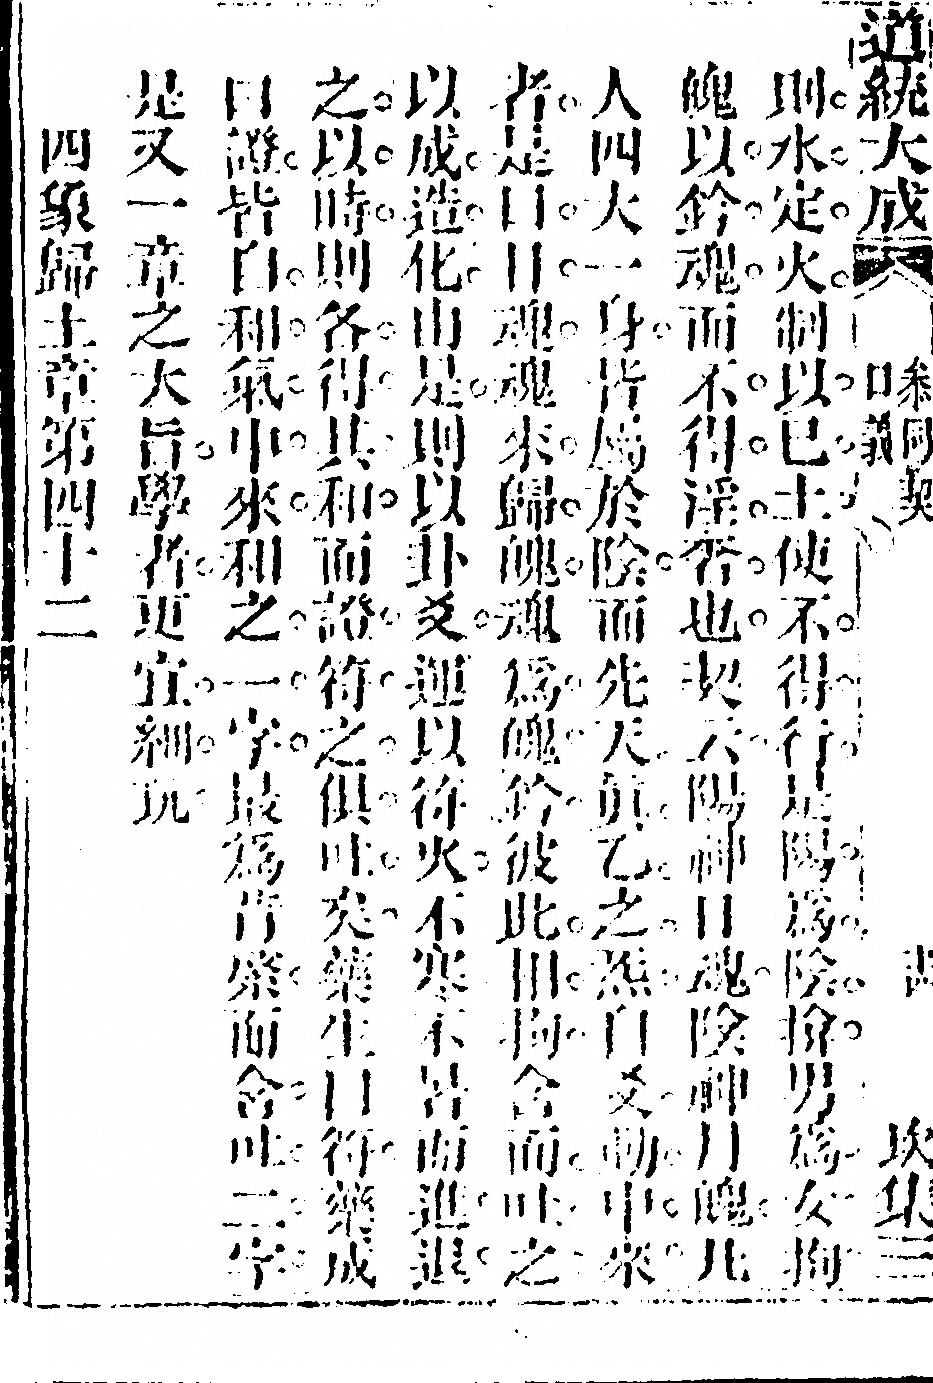 道統大成
參同契
口義
坎集三
則水定火制以己土使不得行是陽為陰擒男為女拘
魄以鈐魂而不得淫奢也契云陽神日魂陰神月魄凡
人四大一身皆屬於陰而先天眞乙之炁自爻動中來
者是曰日魂魂來歸魄魂為魄鈐彼此相拘含而吐之
以成造化由是則以卦爻運以符火不寒不暑而進退
之以時則各得其和而證符之俱吐矣藥生曰符藥成
曰證皆自和氣中來和之一字最為肯綮而含吐二字
是又一章之大旨學者更宜細玩
四象歸土章第四十二